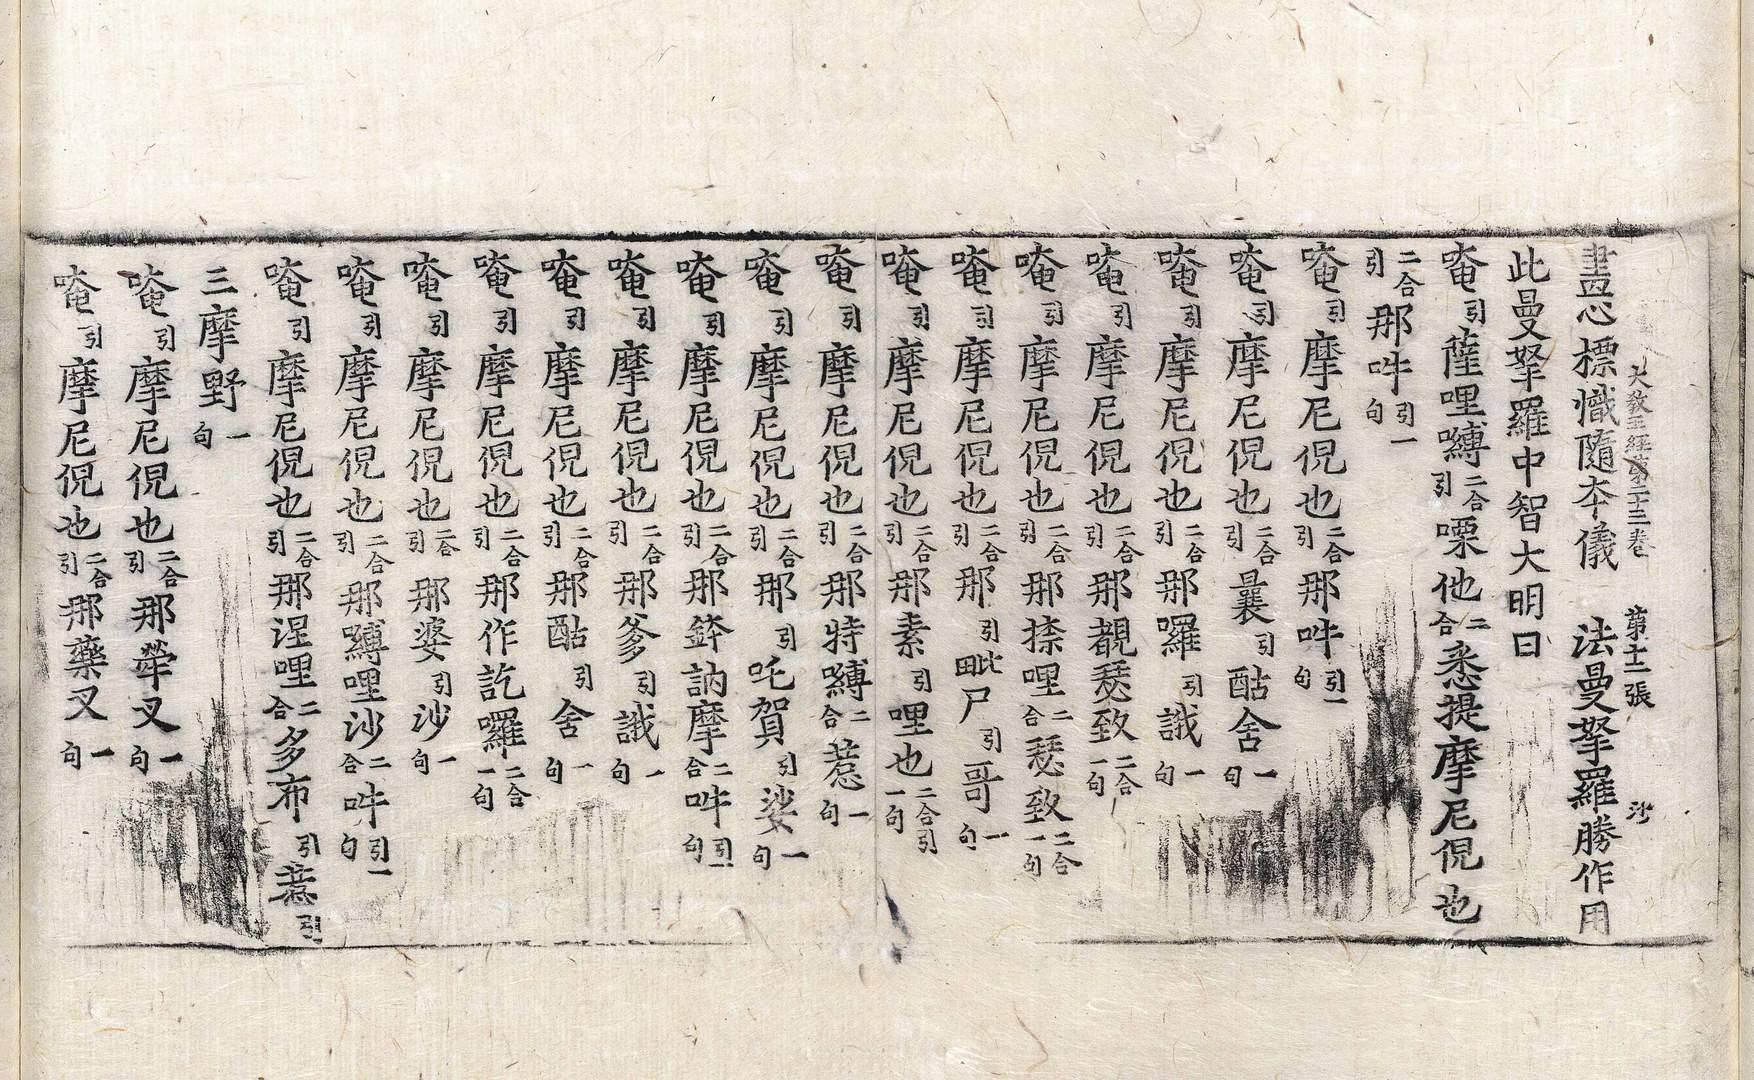 大教王經第二十三卷 第十二張 沙
畫心標幟隨本儀 法曼拏羅勝作用
此曼拏羅中智大明曰
唵引薩哩嚩二合引㗚他二合悉提摩尼倪也
二合引那吽引一句
唵引摩尼倪也二合引那吽引一句
唵引摩尼倪也二合引曩引酤舍一句
唵引摩尼倪也二合引那囉引誐一句
唵引摩尼倪也二合引那覩瑟致二合一句
唵引摩尼倪也二合引那捺哩二合瑟致二合一句
唵引摩尼倪也二合引那引毗尸引哥一句
唵引摩尼倪也二合引那素引哩也二合引一句
唵引摩尼倪也二合引那特嚩二合惹一句
唵引摩尼倪也二合引那引吒賀引娑一句
唵引摩尼倪也二合引那鉢訥摩二合吽引一句
唵引摩尼倪也二合引那爹引誐一句
唵引摩尼倪也二合引那酤引舍一句
唵引摩尼倪也二合引那作訖囉二合一句
唵引摩尼倪也二合引那婆引沙一句
唵引摩尼倪也二合引那嚩哩沙二合吽引一句
唵引摩尼倪也二合引那涅哩二合多布引惹引
三摩野一句
唵引摩尼倪也二合引那犖叉一句
唵引摩尼倪也二合引那藥叉一句